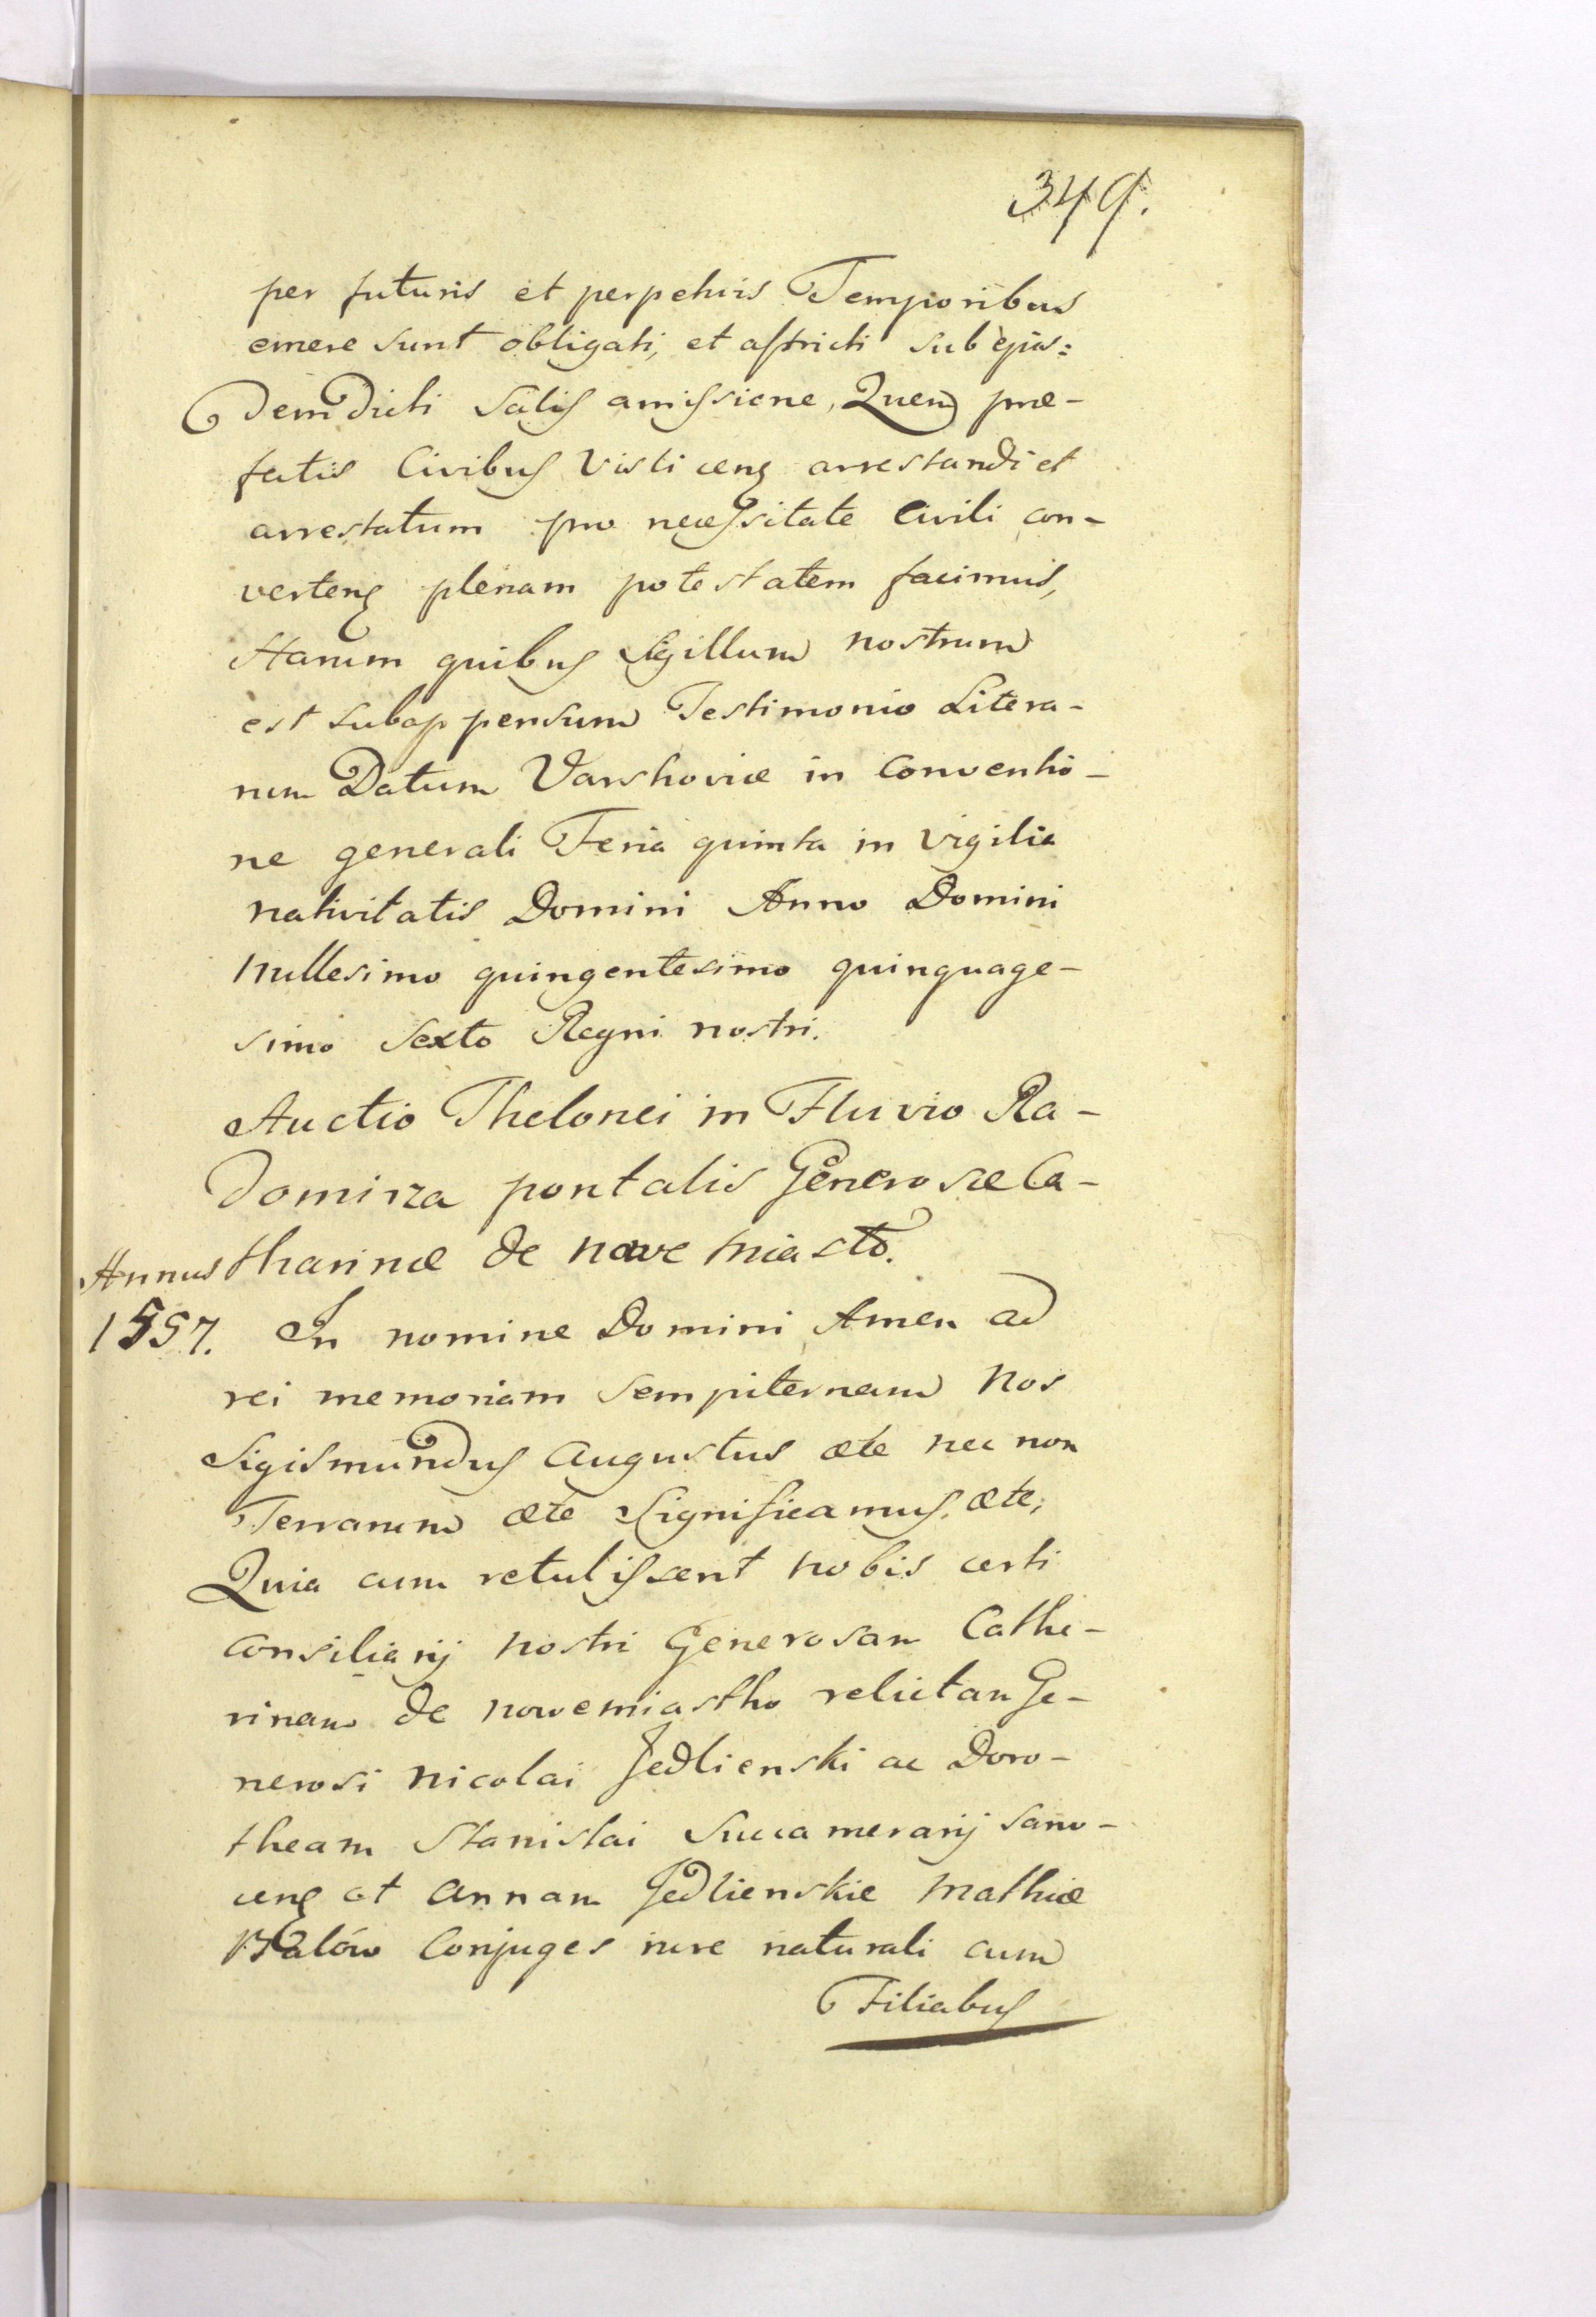 349.
per futuris et perpetuis Temporibus
emere sunt obligati, et astricti sub ejus:
dem dicti Salis amissione, Quem præ-
fatis Civibus Visticens arrestandi et
arrestatum pro necessitate Civili con-
vertens plenam potestatem facimus,
Harum quibus Sigillum nostrum
est subappensum Testimonio Litera-
rum Datum Varshoviæ in Conventio-
ne generali Feria quinta in Vigilia
nativitatis Domini Anno Domini
Millesimo quingentesimo quinquage-
simo Sexto Regni nostri.
Auctio Thelonei in Fluvio Ra-
domirza pontalis Generosæ Ca-
tharinæ de nowe miasto.
Annus
1557. In nomine Domini Amen ad
rei memoriam Sempiternam Nos
Sigismundus Augustus ætc nec non
Terrarum ætc Significamus, ætc;
Quia cum retulissent nobis certi
Consiliarij nostri Generosam Cathe-
rinam de nowemiastho relictam Ge-
nerosi Nicolai Jedlienski ac Doro-
theam Stanislai Succamerarij Sano-
cens et Annam Jedlienskie Mathiæ
Balów Conjuges iure naturali cum
Filiabus